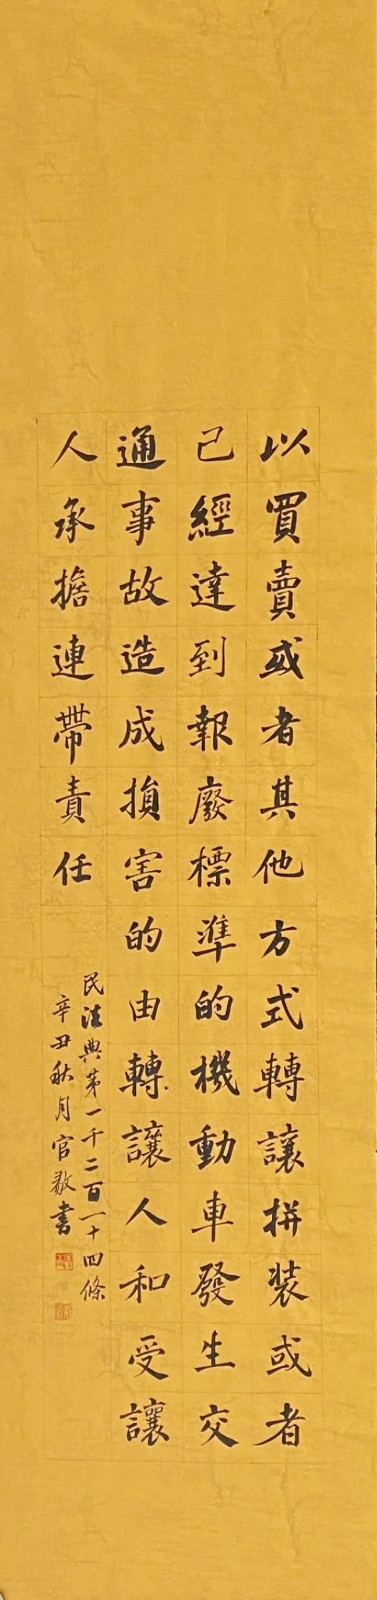 以買賣或者其他方式轉讓拼裝或者
已經達到報廢標準的機動車發生交
通事故造成損害的由轉讓人和受讓
人承擔連帶責任
民法典第一千二百一十四條
辛丑秋月官敬書